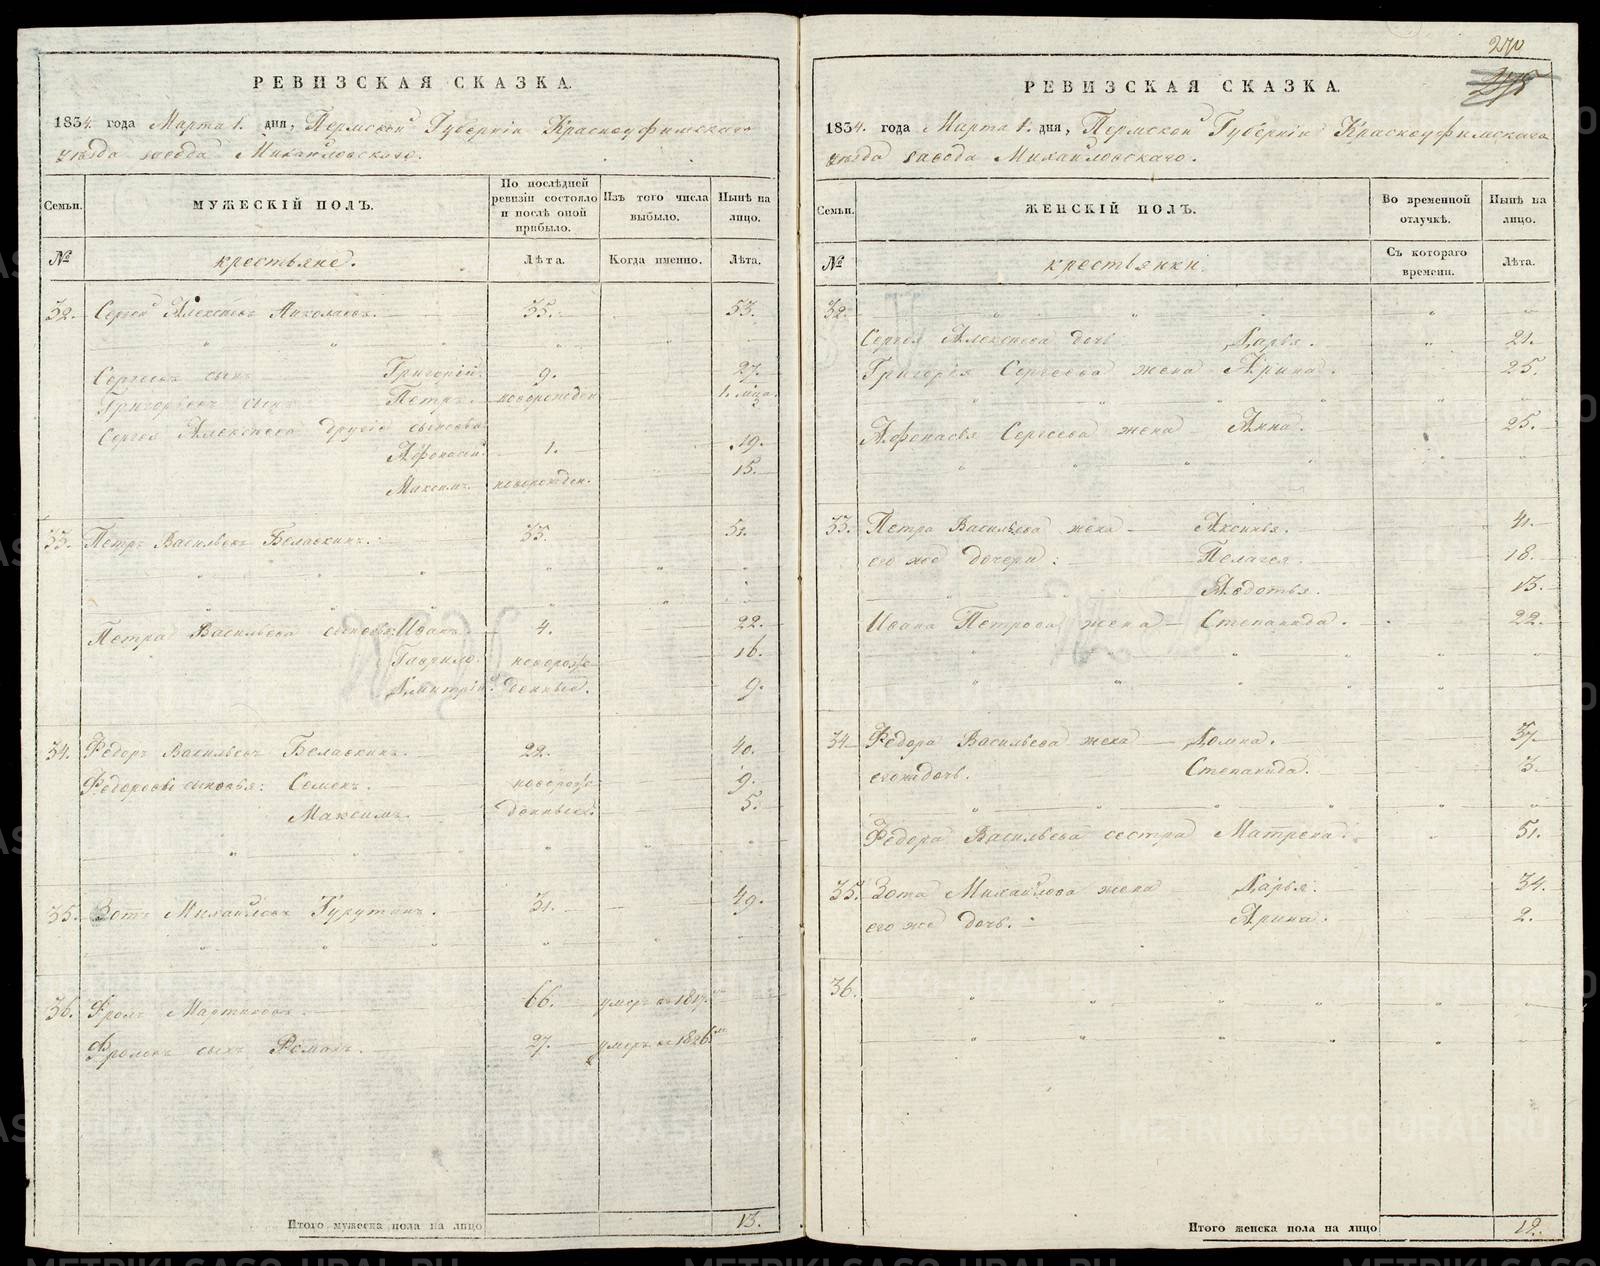 РЕВИЗСКАЯ СКАЗКА.
1834. года Марта 1. дня, Пермской Губерніи Красноуфимскаго
уѣзда завода Михайловскаго.
Семьи.
МУЖЕСКІЙ ПОЛЪ.
По послѣдней ревизіи состояло и послѣ оной прибыло.
Изъ того числа выбыло.
Нынѣ на лицо.
№
крестьяне.
Лѣта.
Когда именно.
Лѣта.
32. Сергей Алексѣевъ 35. 53.
Сергеевъ сынъ Григорій. 9. 27.
Григорьевъ сынъ Петръ. новорожден 1. мѣся.
Сергея Алексѣева другіе сыновья
Афонасій 1. 19.
Максимъ новорожден. 15.
33. Петръ Васильевъ Белавкинъ. 33. 51.
Петра Васильева сыновья: Иванъ. 4. 22.
Гаврило. новорож 16.
Дмитрій. денные. 9.
34. Федоръ Васильевъ Белавкинъ. 22. 40.
Федоровы сыновья: Семенъ. новорож 9.
Максимъ. денные. 5.
35. Зотъ Михайловъ 31. 49.
36. Фролъ Мартиновъ 66. умеръ въ 1817.
Фроловъ сынъ Романъ. 27. умеръ въ 1826.
Итого мужеска пола на лицо 13.
270
275
РЕВИЗСКАЯ СКАЗКА.
1834. года Марта 1. дня, Пермской Губерніи Красноуфимскаго
уѣзда завода Михайловскаго.
Семьи.
ЖЕНСКІЙ ПОЛЪ.
Во временной отлучкѣ.
Нынѣ на лицо.
№
крестьянки
Съ котораго времени.
Лѣта.
32.
Сергея Алексѣева дочь Дарья. 21.
Григорія Сергеева жена Арина. 25.
Афонасья Сергеева жена Анна. 25.
33. Петра Васильева жена Аксинья. 41.
его же дочери: Пелагея. 18.
Авдотья. 13.
Ивана Петрова жена Степанида. 22.
34. Федора Васильева жена Домна. 37.
его же дочь. Степанида. 3.
Федора Васильева сестра Матрена. 51.
35. Зота Михайлова жена Дарья. 34.
его же дочь. Арина. 2.
36.
Итого женска пола на лицо 12.
METRIKI.GASO-URAL.RU